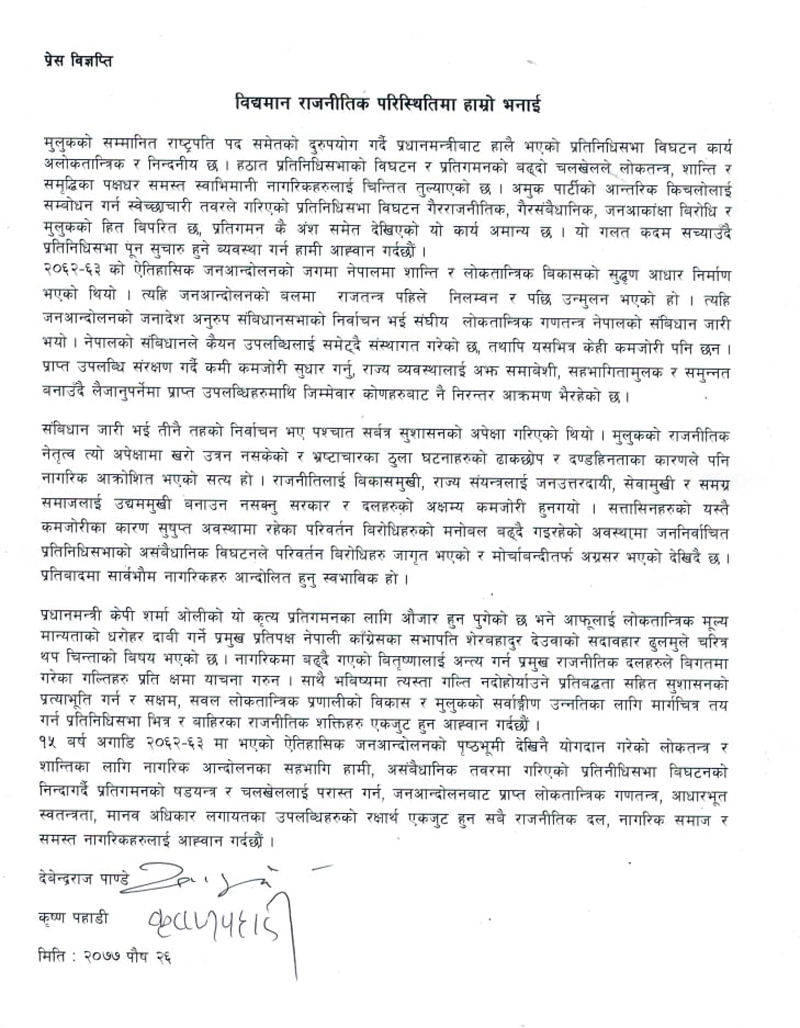 प्रेस विज्ञप्ति
विद्यमान राजनीतिक परिस्थितिमा हाम्रो भनाई
मुलुकको सम्मानित राष्ट्रपति पद समेतको दुरुपयोग गर्दै प्रधानमन्त्रीबाट हालै भएको प्रतिनिधिसभा विघटन कार्य
अलोकतान्त्रिक र निन्दनीय छ । हठात प्रतिनिधिसभाको विघटन र प्रतिगमनको बढ्दो चलखेलले लोकतन्त्र, शान्ति र
समृद्धिका पक्षधर समस्त स्वाभिमानी नागरिकहरुलाई चिन्तित तुल्याएको छ । अमुक पार्टीको आन्तरिक किचलोलाई
सम्बोधन गर्न स्वेच्छाचारी तवरले गरिएको प्रतिनिधिसभा विघटन गैरराजनीतिक, गैरसंबैधानिक, जनआकांक्षा बिरोधि र
मुलुकको हित बिपरित छ, प्रतिगमन कै अंश समेत देखिएको यो कार्य अमान्य छ । यो गलत कदम सच्याउँदै
प्रतिनिधिसभा पून सुचारु हुने ब्यवस्था गर्न हामी आह्वान गर्दछौं ।
२०६२-६३ को ऐतिहासिक जनआन्दोलनको जगमा नेपालमा शान्ति र लोकतान्त्रिक बिकासको सुदृण आधार निर्माण
भएको थियो । त्यहि जनआन्दोलनको बलमा राजतन्त्र पहिले निलम्वन र पछि उन्मुलन भएको हो । त्यहि
जनआन्दोलनको जनादेश अनुरुप संबिधानसभाको निर्वाचन भई संघीय लोकतान्त्रिक गणतन्त्र नेपालको संबिधान जारी
भयो । नेपालको संबिधानले कैयन उपलब्धिलाई समेट्दै संस्थागत गरेको छ, तथापि यसभित्र केही कमजोरी पनि छन ।
प्राप्त उपलब्धि संरक्षण गर्दै कमी कमजोरी सुधार गर्नु, राज्य ब्यवस्थालाई अझ समाबेशी, सहभागितामुलक र समुन्नत
बनाउँदै लैजानुपर्नेमा प्राप्त उपलब्धिहरुमाथि जिम्मेवार कोणहरुबाट नै निरन्तर आक्रमण भैरहेको छ ।
संबिधान जारी भई तीनै तहको निर्वाचन भए पश्चात सर्बत्र सुशासनको अपेक्षा गरिएको थियो । मुलुकको राजनीतिक
नेतृत्व त्यो अपेक्षामा खरो उत्रन नसकेको र भ्रष्टाचारका ठुला घटनाहरुको ढाकछोप र दण्डहिनताका कारणले पनि
नागरिक आक्रोशित भएको सत्य हो । राजनीतिलाई बिकासमुखी, राज्य संयन्त्रलाई जनउत्तरदायी, सेवामुखी र समग्र
समाजलाई उद्यममुखी बनाउन नसक्नु सरकार र दलहरुको अक्षम्य कमजोरी हुनगयो । सत्तासिनहरुको यस्तै
कमजोरीका कारण सुषुप्त अवस्थामा रहेका परिवर्तन बिरोधिहरुको मनोबल बढ्दै गइरहेको अवस्थामा जननिर्वाचित
प्रतिनिधिसभाको असंबैधानिक विघटनले परिवर्तन बिरोधिहरु जागृत भएको र मोर्चाबन्दीतर्फ अग्रसर भएको देखिदै छ ।
प्रतिबादमा सार्वभौम नागरिकहरु आन्दोलित हुनु स्वभाविक हो ।
प्रधानमन्त्री केपी शर्मा ओलीको यो कृत्य प्रतिगमनका लागि औजार हुन पुगेको छ भने आफूलाई लोकतान्त्रिक मूल्य
मान्यताको धरोहर दावी गर्ने प्रमुख प्रतिपक्ष नेपाली काँग्रेसका सभापति शेरबहादुर देउवाको सदावहार ढुलमुले चरित्र
थप चिन्ताको बिषय भएको छ । नागरिकमा बढ्दै गएको बितृष्णालाई अन्त्य गर्न प्रमुख राजनीतिक दलहरुले बिगतमा
गरेका गल्तिहरु प्रति क्षमा याचना गरुन । साथै भबिष्यमा त्यस्ता गल्ति नदोहोर्याउने प्रतिबद्धता सहित सुशासनको
प्रत्याभूति गर्न र सक्षम, सवल लोकतान्त्रिक प्रणालीको विकास र मुलुकको सर्वाङ्गीण उन्नतिका लागि मार्गचित्र तय
गर्न प्रतिनिधिसभा भित्र र बाहिरका राजनीतिक शक्तिहरु एकजुट हुन आह्वान गर्दछौं ।
१५ बर्ष अगाडि २०६२-६३ मा भएको ऐतिहासिक जनआन्दोलनको पृष्ठभूमी देखिनै योगदान गरेको लोकतन्त्र र
शान्तिका लागि नागरिक आन्दोलनका सहभागि हामी, असंबैधानिक तवरमा गरिएको प्रतिनीधिसभा बिघटनको
निन्दागर्दै प्रतिगमनको षडयन्त्र र चलखेललाई परास्त गर्न, जनआन्दोलनबाट प्राप्त लोकतान्त्रिक गणतन्त्र, आधारभूत
स्वतन्त्रता, मानव अधिकार लगायतका उपलब्धिहरुको रक्षार्थ एकजुट हुन सबै राजनीतिक दल, नागरिक समाज र
समस्त नागरिकहरुलाई आह्वान गर्दछौं ।
देबेन्द्रराज पाण्डे
कृष्ण पहाडी कृष्णपहाडी
मिति : २०७७ पौष २६